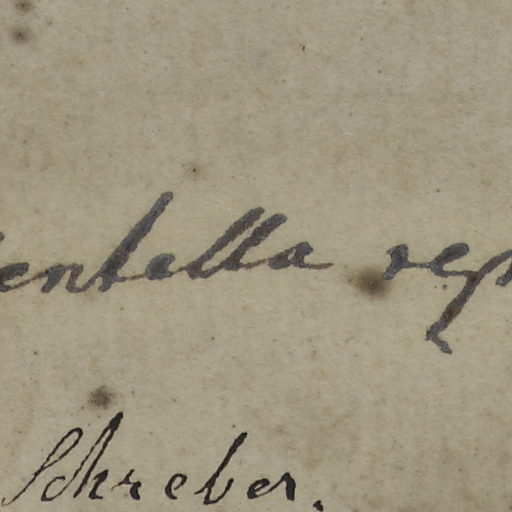 entella rep
Schreber.